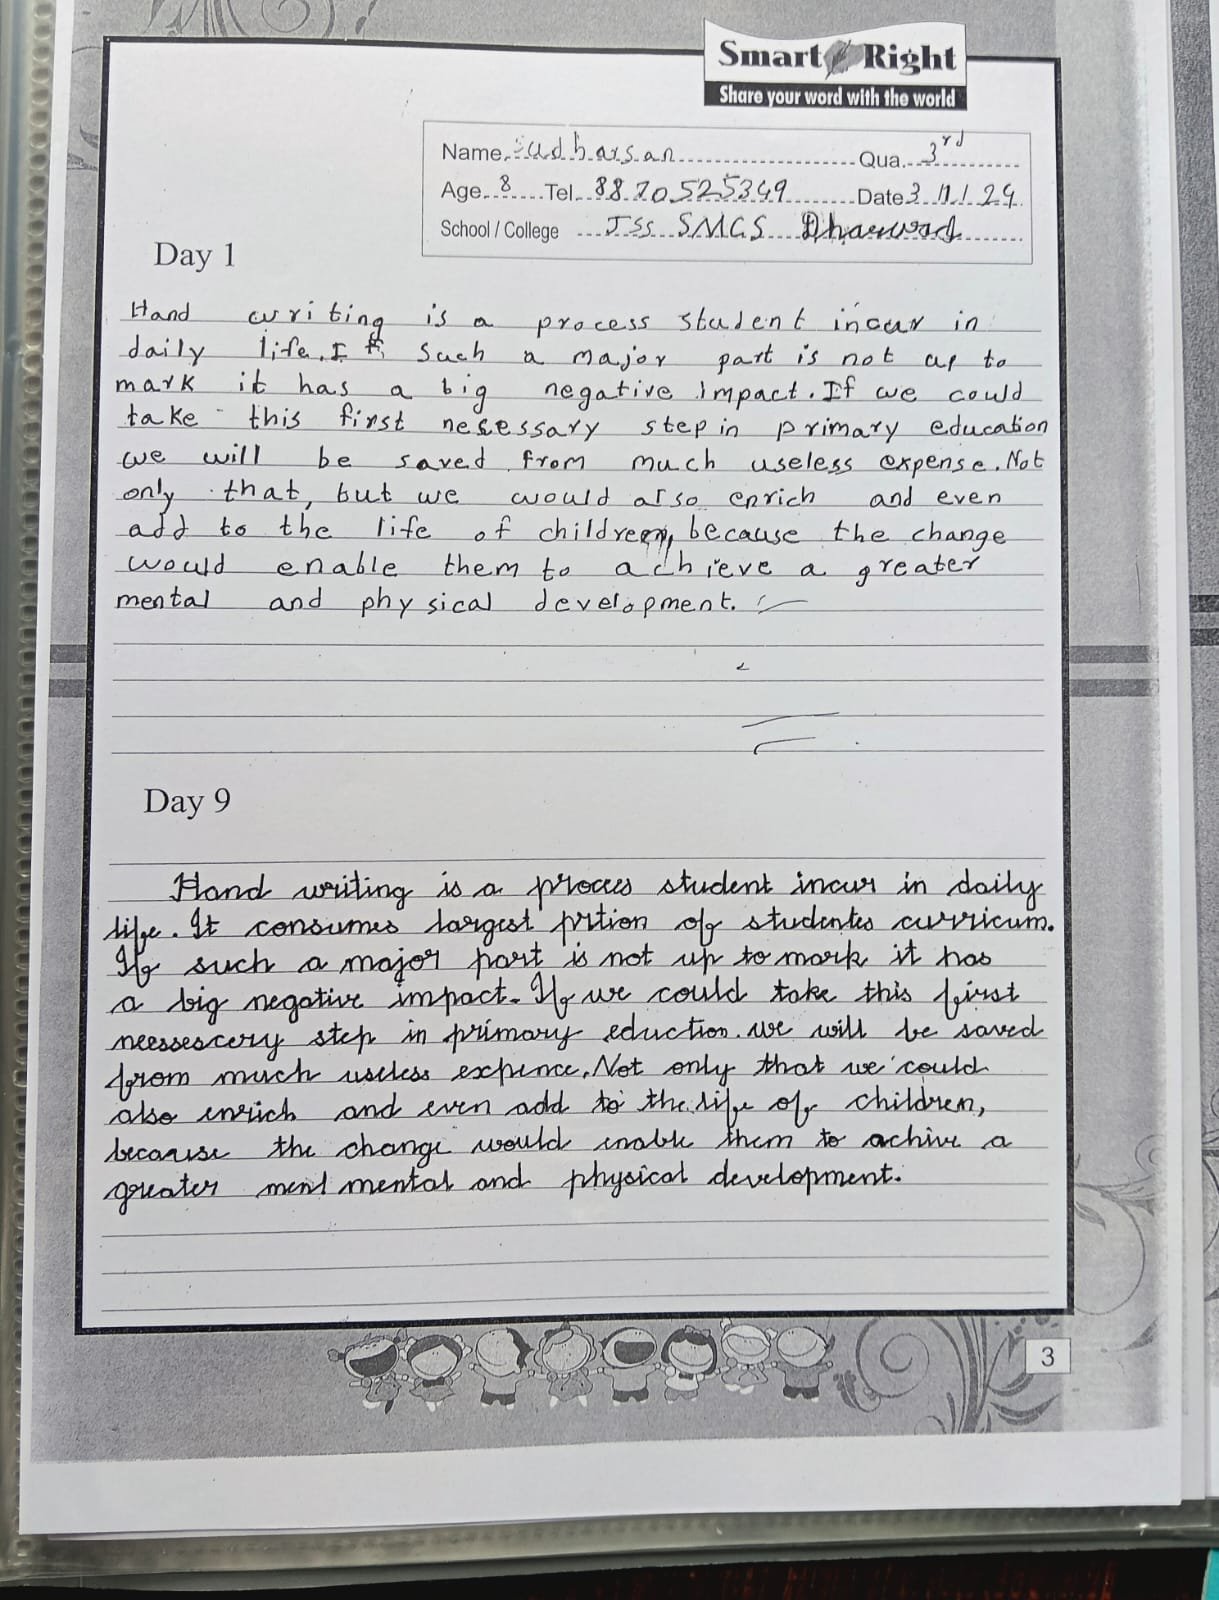 Smart Right
Share your word with the world
Name Sudharsan Qua. 3rd
Age 8 Tel. 8870525349 Date 3.11.24
School / College JSS SMGS Dharwad
Day 1
Hand writing is a process student incur in
daily life. If such a major part is not up to
mark it has a big negative impact. If we could
take this first necessary step in primary education
we will be saved from much useless expense. Not
only that, but we would also enrich and even
add to the life of children, because the change
would enable them to achieve a greater
mental and physical development.
Day 9
Hand writing is a proces student incur in daily
life. It consumes largest prtion of studentes curricum.
If such a major part is not up to mark it has
a big negative impact. If we could take this first
neessescery step in primary eduction. we will be saved
from much useless expence. Not only that we could
also enrich and even add to the life of children,
because the change would enable them to achive a
greater ment mental and physical development.
3